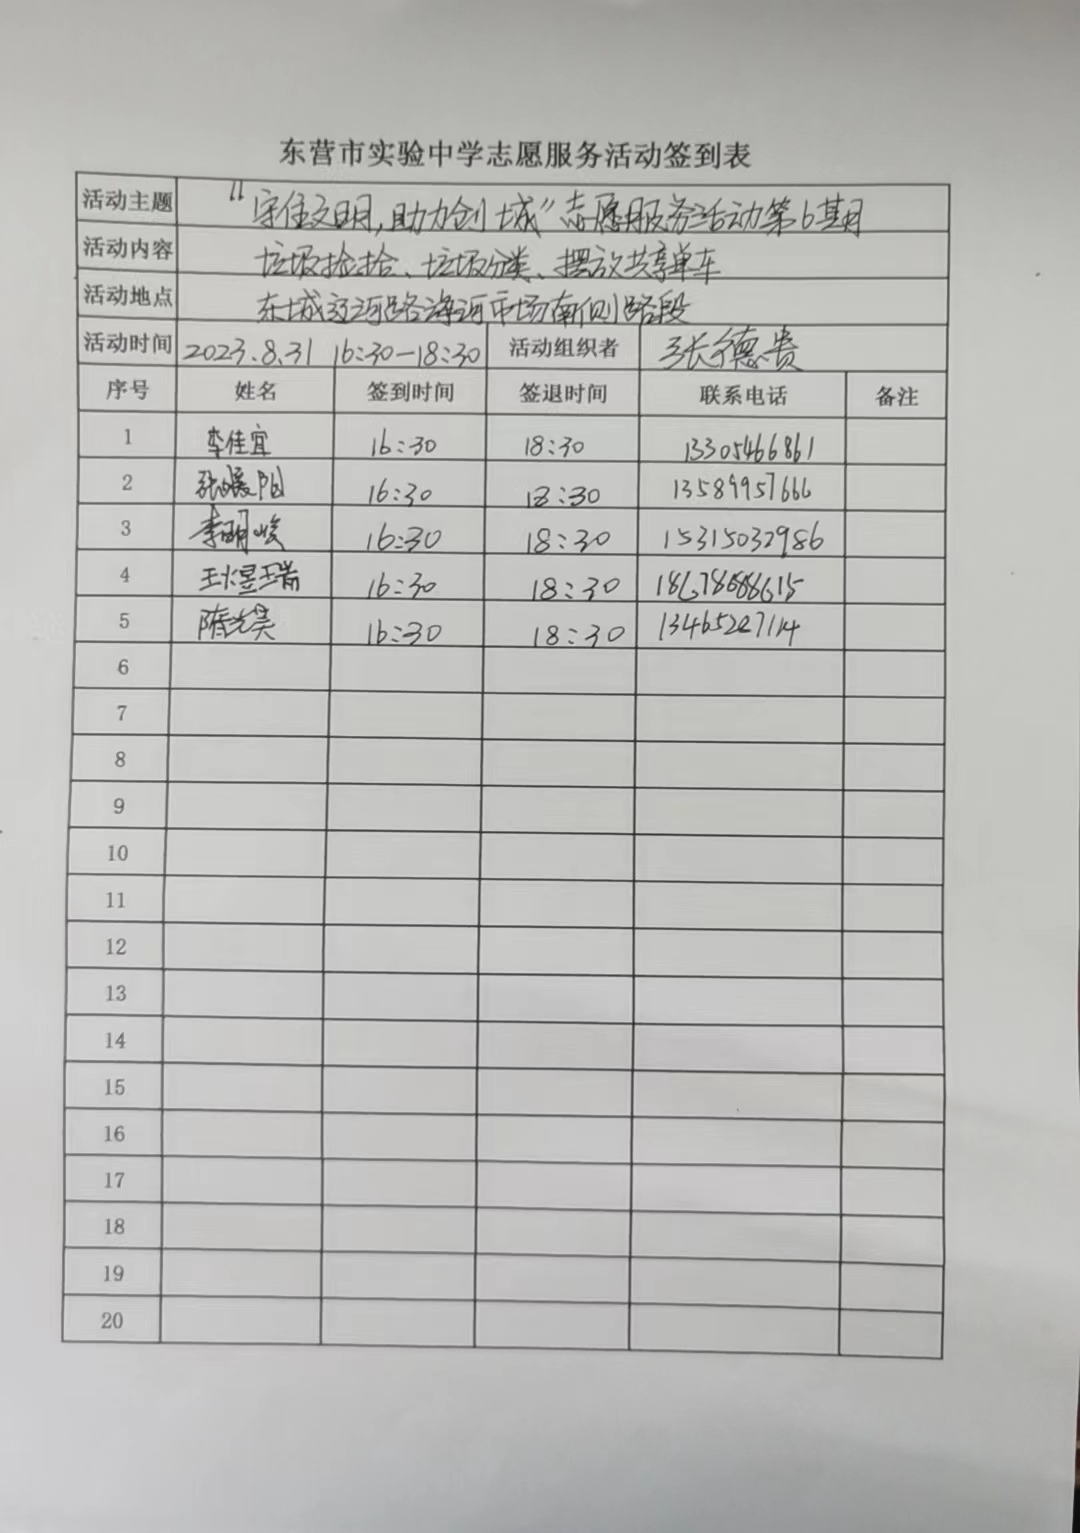 东营市实验中学志愿服务活动签到表
活动主题 “守住文明,助力创城”志愿服务活动第6期
活动内容 垃圾捡拾、垃圾分类、摆放共享单车
活动地点 东城辽河路海河市场南侧路段
活动时间 2023.8.31 16:30-18:30 活动组织者 张德贵
序号 姓名 签到时间 签退时间 联系电话 备注
1 李佳宜 16:30 18:30 13305466861
2 张暖阳 16:30 18:30 13589957666
3 李明峻 16:30 18:30 15315032986
4 王煜瑞 16:30 18:30 18678688615
5 隋光昊 16:30 18:30 13465227114
6
7
8
9
10
11
12
13
14
15
16
17
18
19
20